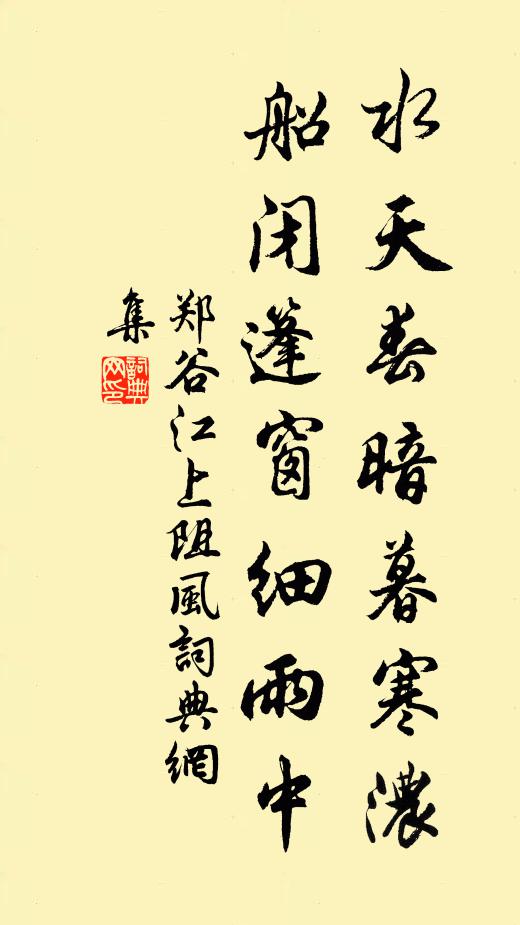 水天春暗暮寒濃
船闭蓬窗細雨中
郑谷江上阻風詞典網
集
詞典
网印